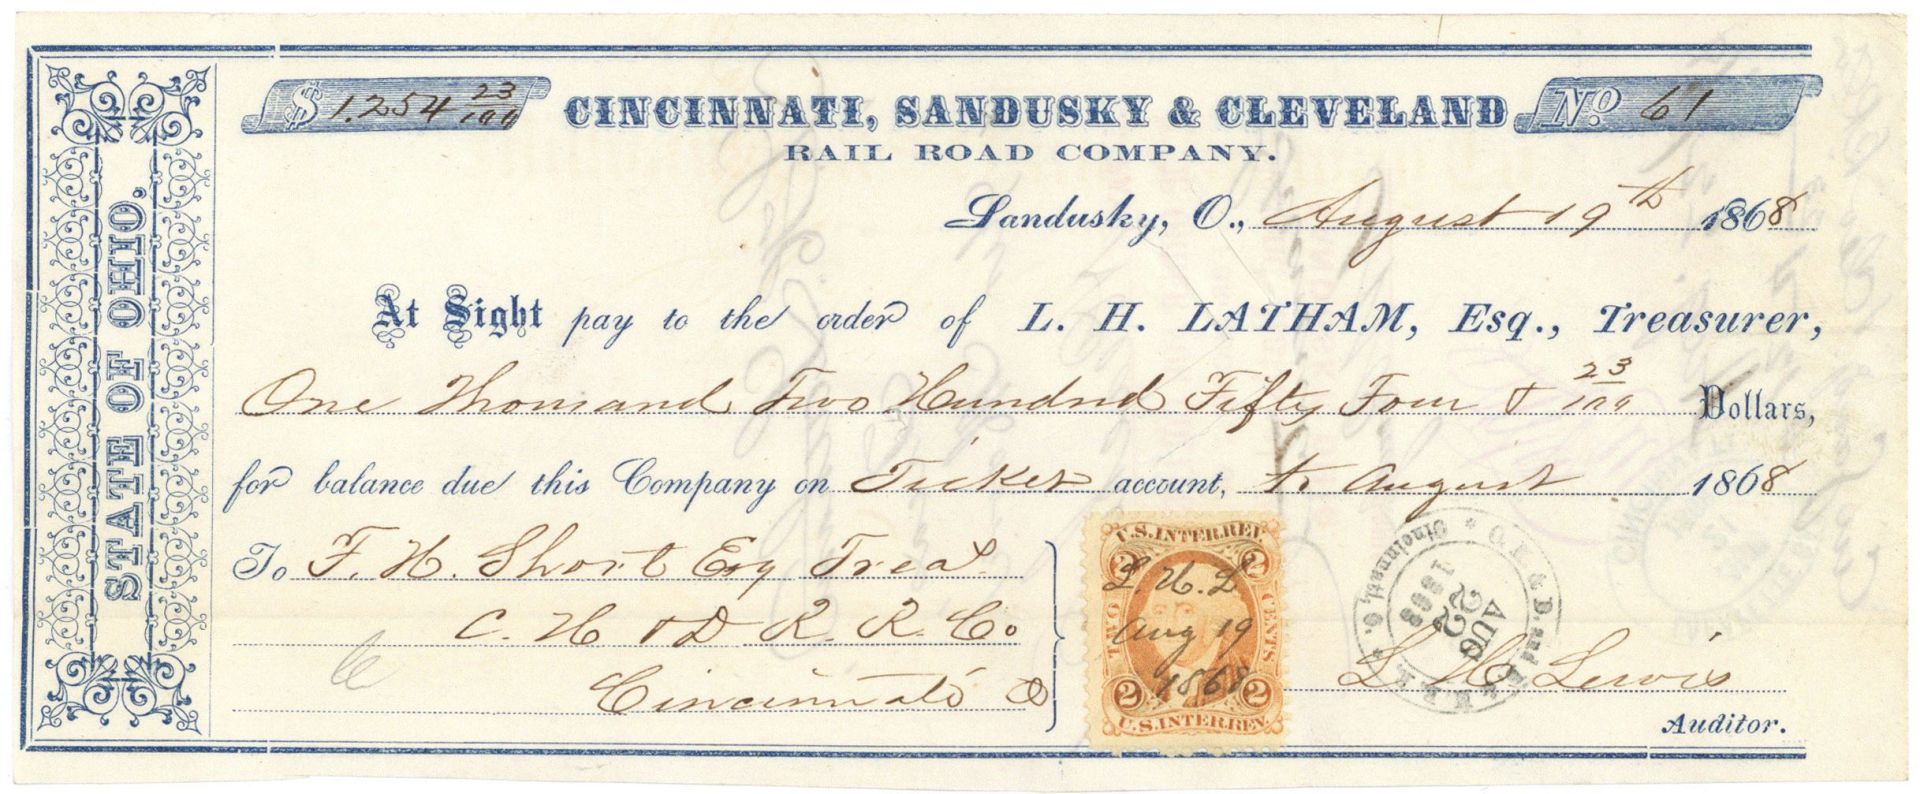 STATE OF OHIO.
$ 1.254 23/100
CINCINNATI, SANDUSKY & CLEVELAND
No. 61
RAIL ROAD COMPANY.
Sandusky, O., August 19th 1868
At Sight pay to the order of L. H. LATHAM, Esq., Treasurer,
One Thousand Two Hundred Fifty Four & 23/100 Dollars,
for balance due this Company on Ticket account, to August 1868
To F. H. Short Esq Treas.
C. H & D R. R. Co
Cincinnati O
U.S. INTER. REV.
2 2
TWO CENTS
L. H. L
Aug 19
1868
2 2
U.S. INTER. REV.
C. H. & D. and D. & M. R. R.
AUG
22
1868
Cincinnati, O.
L H Lewis
Auditor.